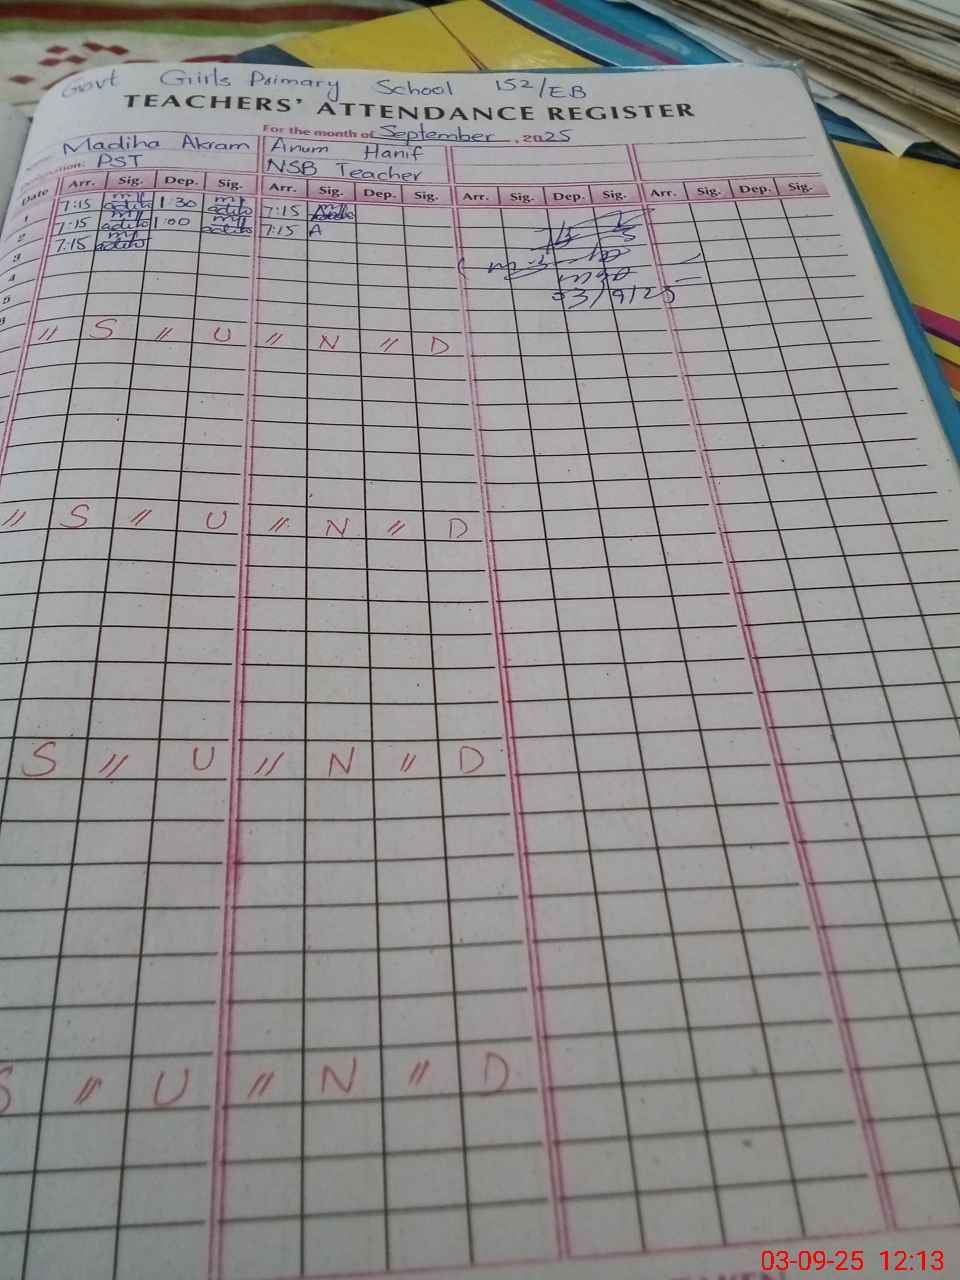 Govt Girls Primary School 152/EB
TEACHERS' ATTENDANCE REGISTER
For the month of September, 2025
Madiha Akram Anum Hanif
PST NSB Teacher
Date Arr. Sig. Dep. Sig. Arr. Sig. Dep. Sig. Arr. Sig. Dep. Sig. Arr. Sig. Dep. Sig.
1 7:15 1:30 7:15
2 7:15 1:00 7:15 A
3 7:15
4
5
03/9/25
// S // U // N // D
// S // U // N // D
S // U // N // D
S // U // N // D
03-09-25 12:13